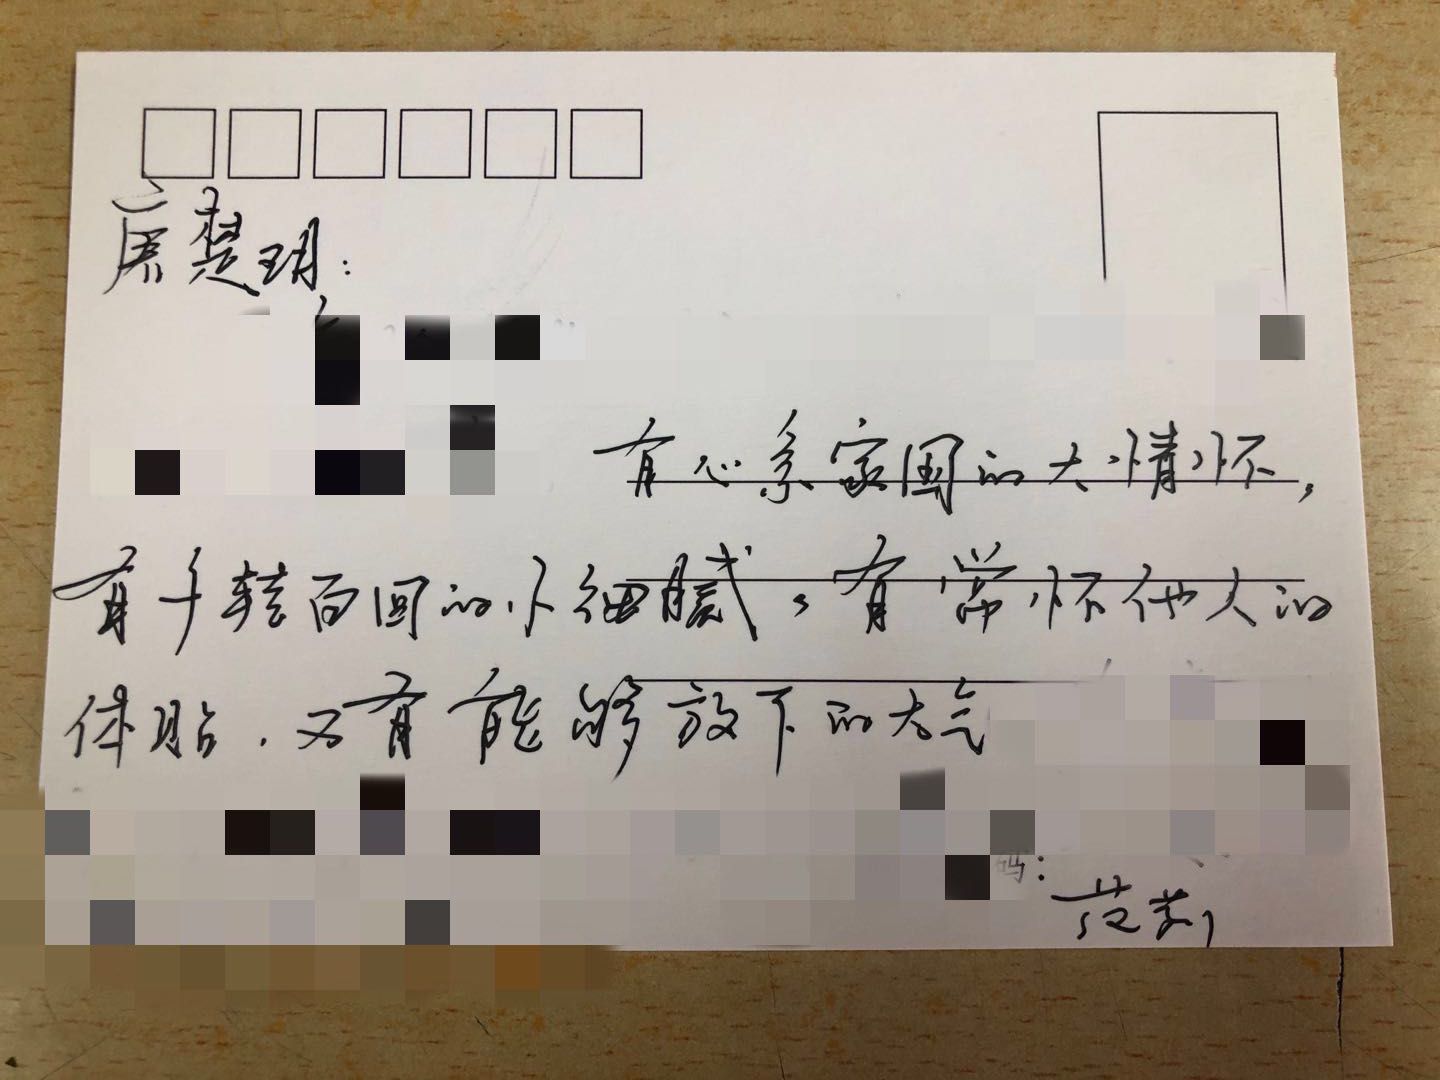 楚玥：
有心系家国的大情怀，
有千转百回的小细腻，有常怀他人的
体贴，又有能够放下的大气
码：
范